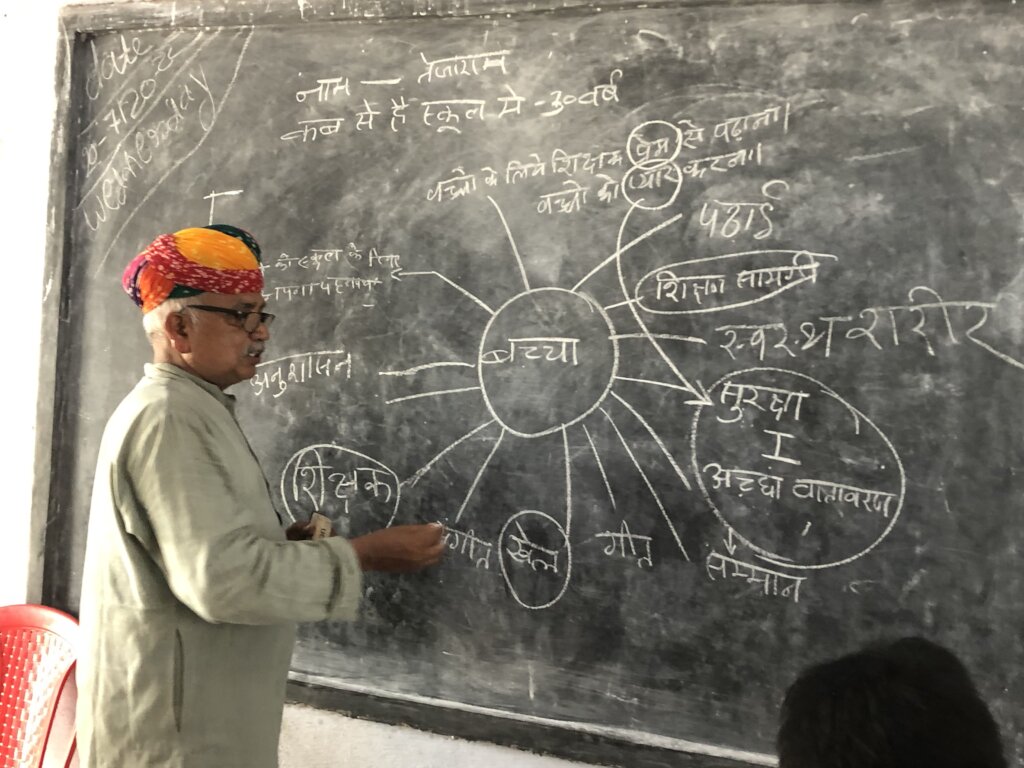 date
Wednesday
नाम — तेजाराम
कब से है स्कूल से - 30 वर्ष
बच्चों के लिये शिक्षक प्रेम से पढ़ाना।
बच्चों को प्यार करना।
पढाई
शिक्षण सामग्री
स्वस्थ शरीर
बच्चा
सुरक्षा
अच्छा वातावरण
सम्मान
गीत
खेल
शिक्षक
अनुशासन
स्कूल के लिए